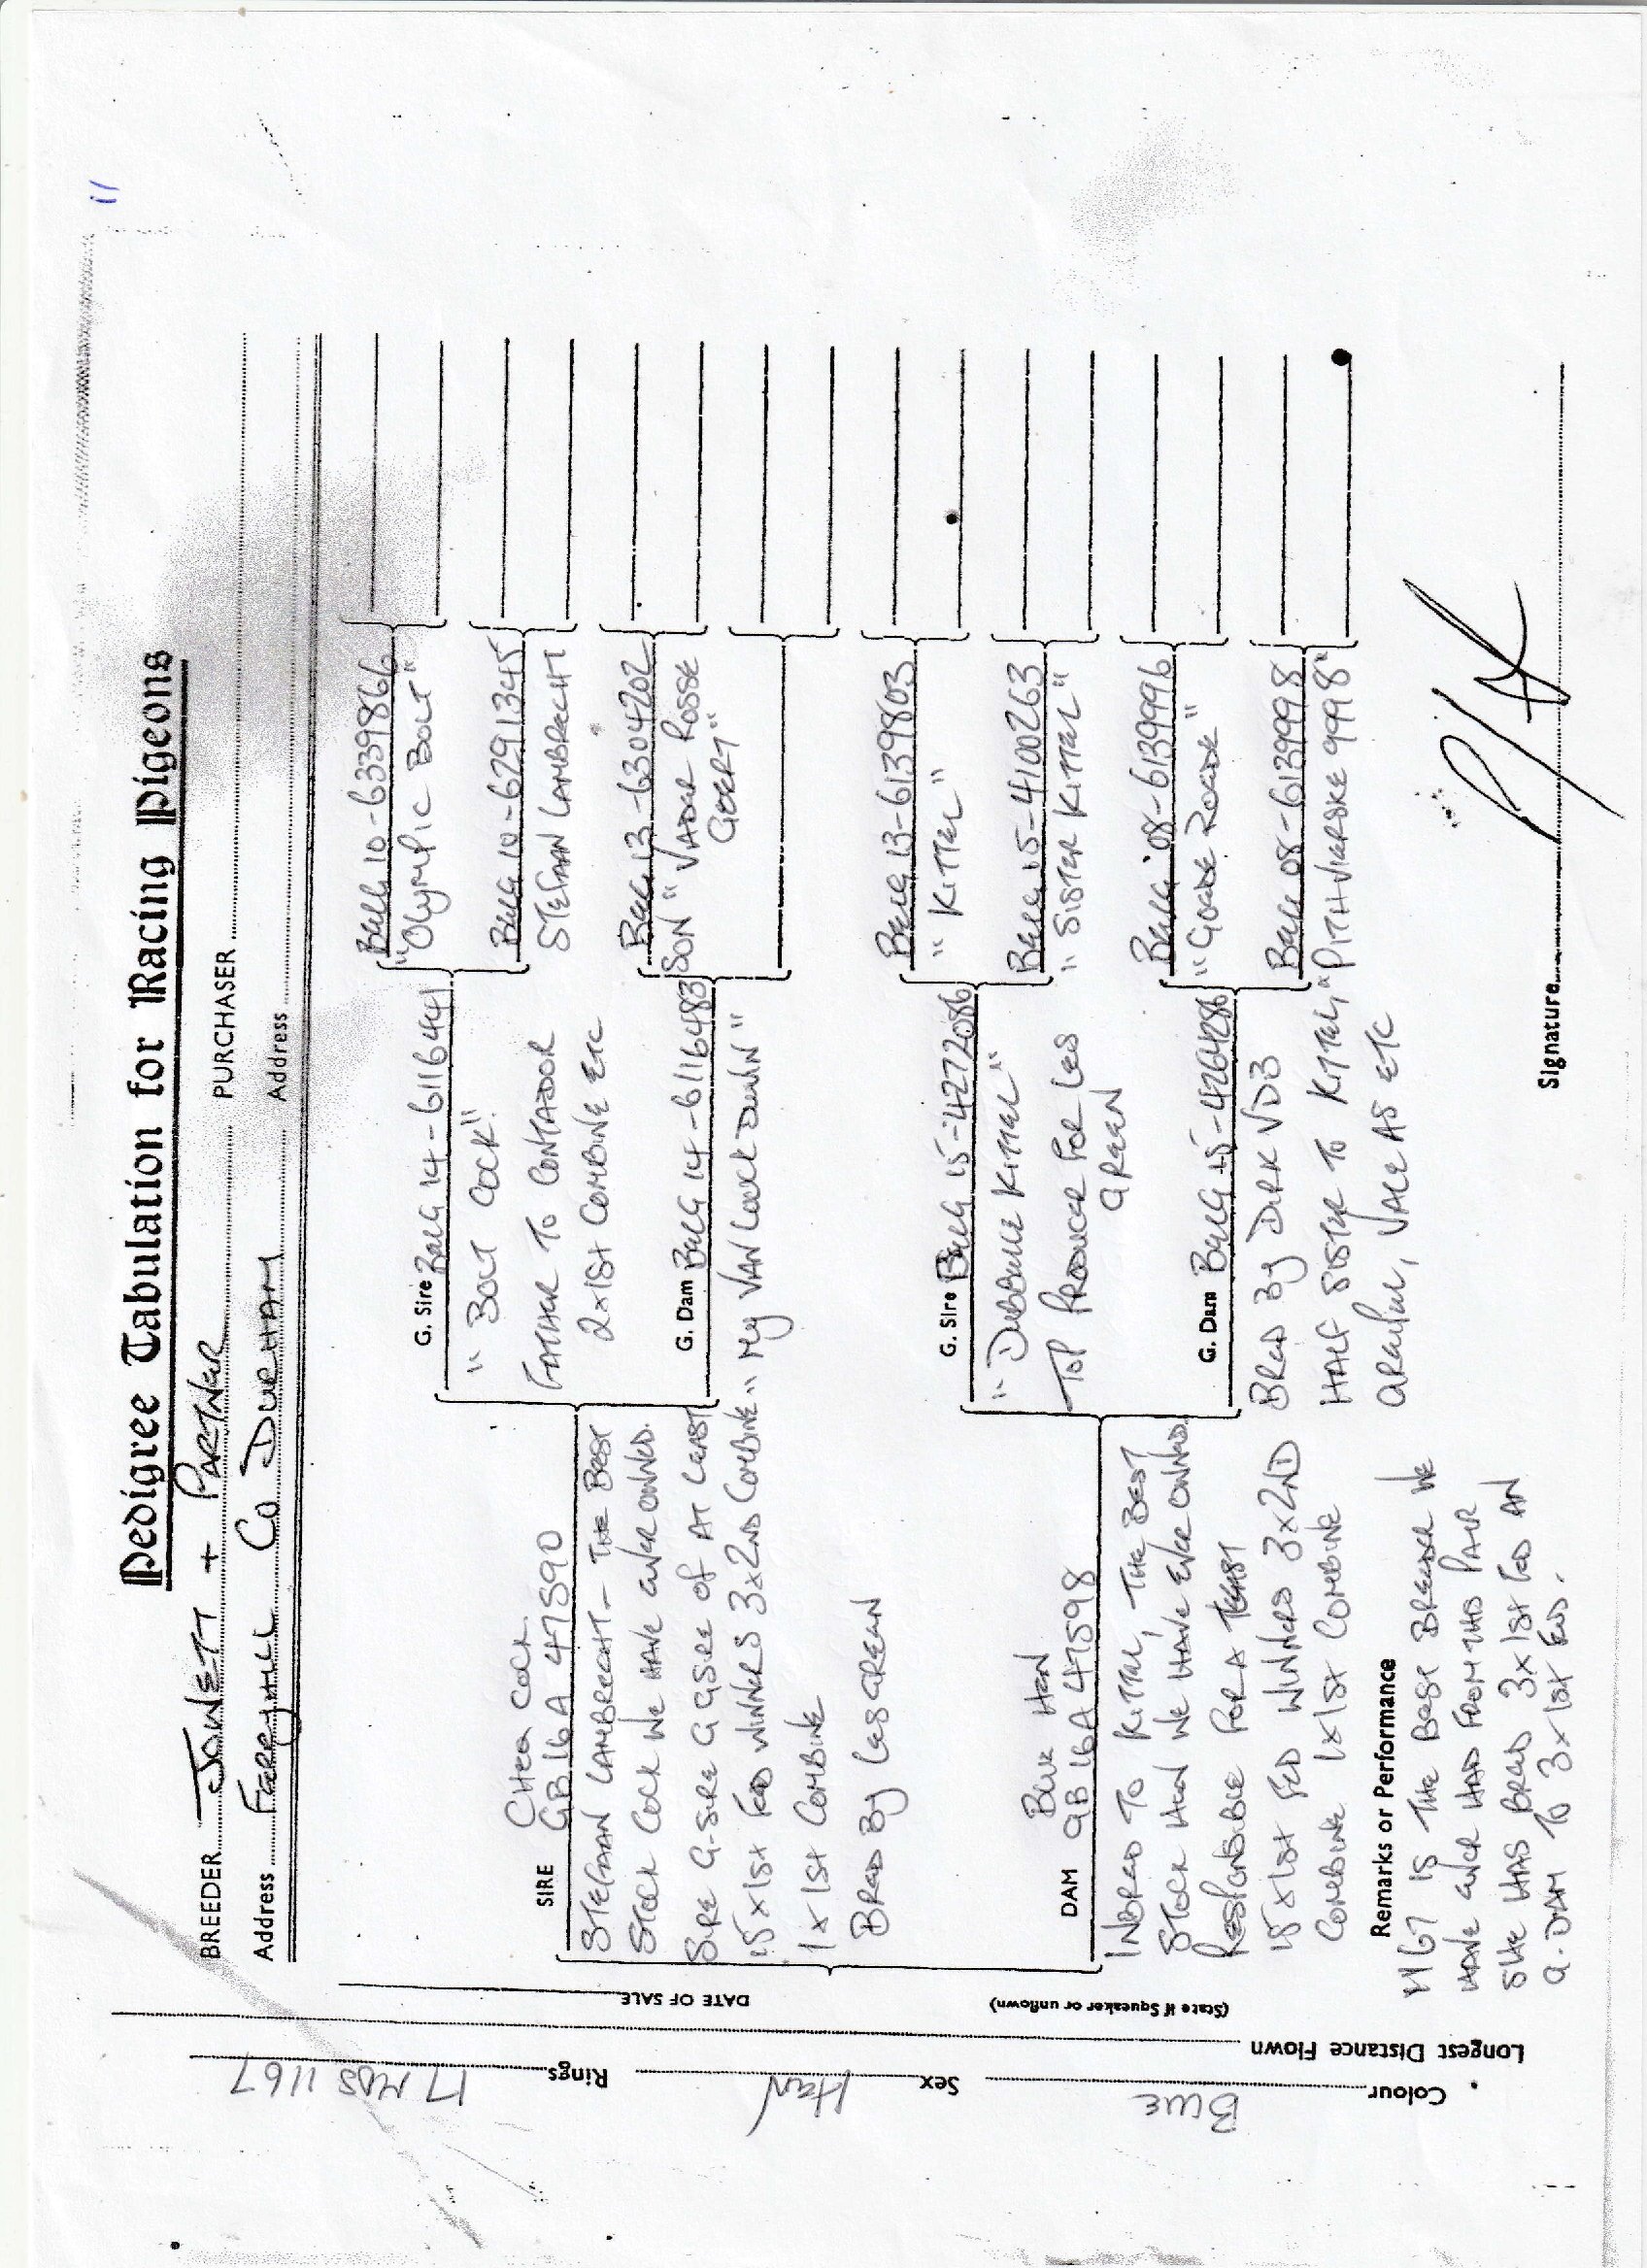 11
Pedigree Tabulation for Racing Pigeons
BREEDER JOWETT + PARTNER PURCHASER
Address FERRYHILL CO DURHAM Address
Colour BLUE Sex HEN Rings 17 MDS 1167
Longest Distance Flown
(State if Squeaker or unflown) DATE OF SALE
CHEQ COCK
SIRE GB 16 A 47590
STEFAAN LAMBRECHT - THE BEST
STOCK COCK WE HAVE EVER OWNED.
SIRE G-SIRE G GSIRE OF AT LEAST
15 x 1st FED WINNERS 3x2ND COMBINE
1 x 1st COMBINE
BRED BY LES GREEN
BLUE HEN
DAM GB 16A 47598
INBRED TO KITTEL, THE BEST
STOCK HEN WE HAVE EVER OWNED.
RESPONSIBLE FOR A
15 x 1st FED WINNERS 3x2ND
COMBINE 1x1st COMBINE
G. Sire BELG 14-6116441
"BOLT COCK"
FATHER TO CONTADOR
2x1st COMBINE ETC
G. Dam BELG 14-6116483
"MY VAN LOOCK DOWN"
G. Sire BELG 15-4272086
"DUBBELE KITTEL"
TOP PRODUCER FOR LES
GREEN
G. Dam BELG 15-4264286
BRED BY DIRK VDB
HALF SISTER TO KITTEL,
GREIPEL, VALE AS ETC
BELG 10-6339866
"OLYMPIC BOLT"
BELG 10-6291345
STEFAAN LAMBRECHT
BELG 13-6304202
SON "VADER ROSSE
GEERT"
BELG 13-6139803
"KITTEL"
BELG 15-4100263
"SISTER KITTEL"
BELG 08-6139996
"GOEDE RODE"
BELG 08-6139998
9998"
Remarks or Performance
1167 IS THE BEST BREEDER WE
HAVE EVER HAD FROM THIS PAIR
SHE HAS BRED 3x1st FED AN
G.DAM TO 3x1st FED.
Signature